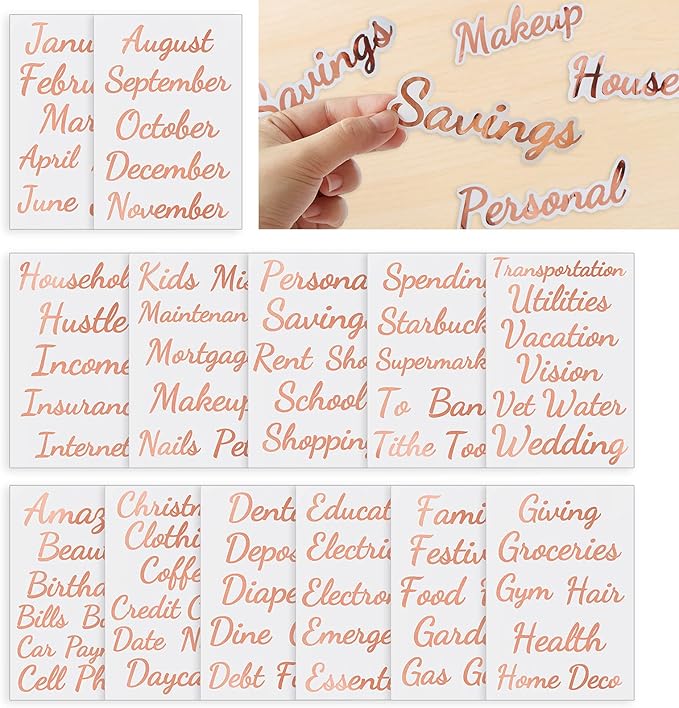 Janu
Febru
Mar
April
June
August
September
October
December
November
Savings
Makeup
House
Savings
Personal
Househol
Hustle
Income
Insuranc
Internet
Kids Mis
Maintenan
Mortgag
Makeup
Nails Pet
Personal
Saving
Rent Sho
School
Shopping
Spending
Starbuck
Supermark
To Ban
Tithe Too
Transportation
Utilities
Vacation
Vision
Vet Water
Wedding
Amaz
Beau
Birtha
Bills Ba
Car Paym
Cell Ph
Christm
Clothi
Coffe
Credit C
Date N
Dayca
Dent
Depos
Diape
Dine
Debt F
Educat
Electri
Electron
Emerge
Essent
Fami
Festiv
Food
Gard
Gas G
Giving
Groceries
Gym Hair
Health
Home Deco